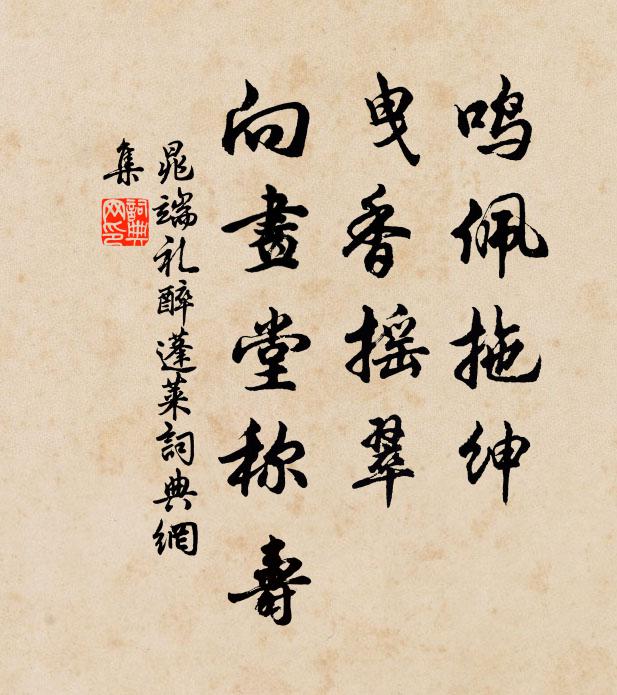 鸣佩拖绅
曳香摇翠
向畫堂称壽
晁端礼醉蓬莱詞典網
集
詞典
网印